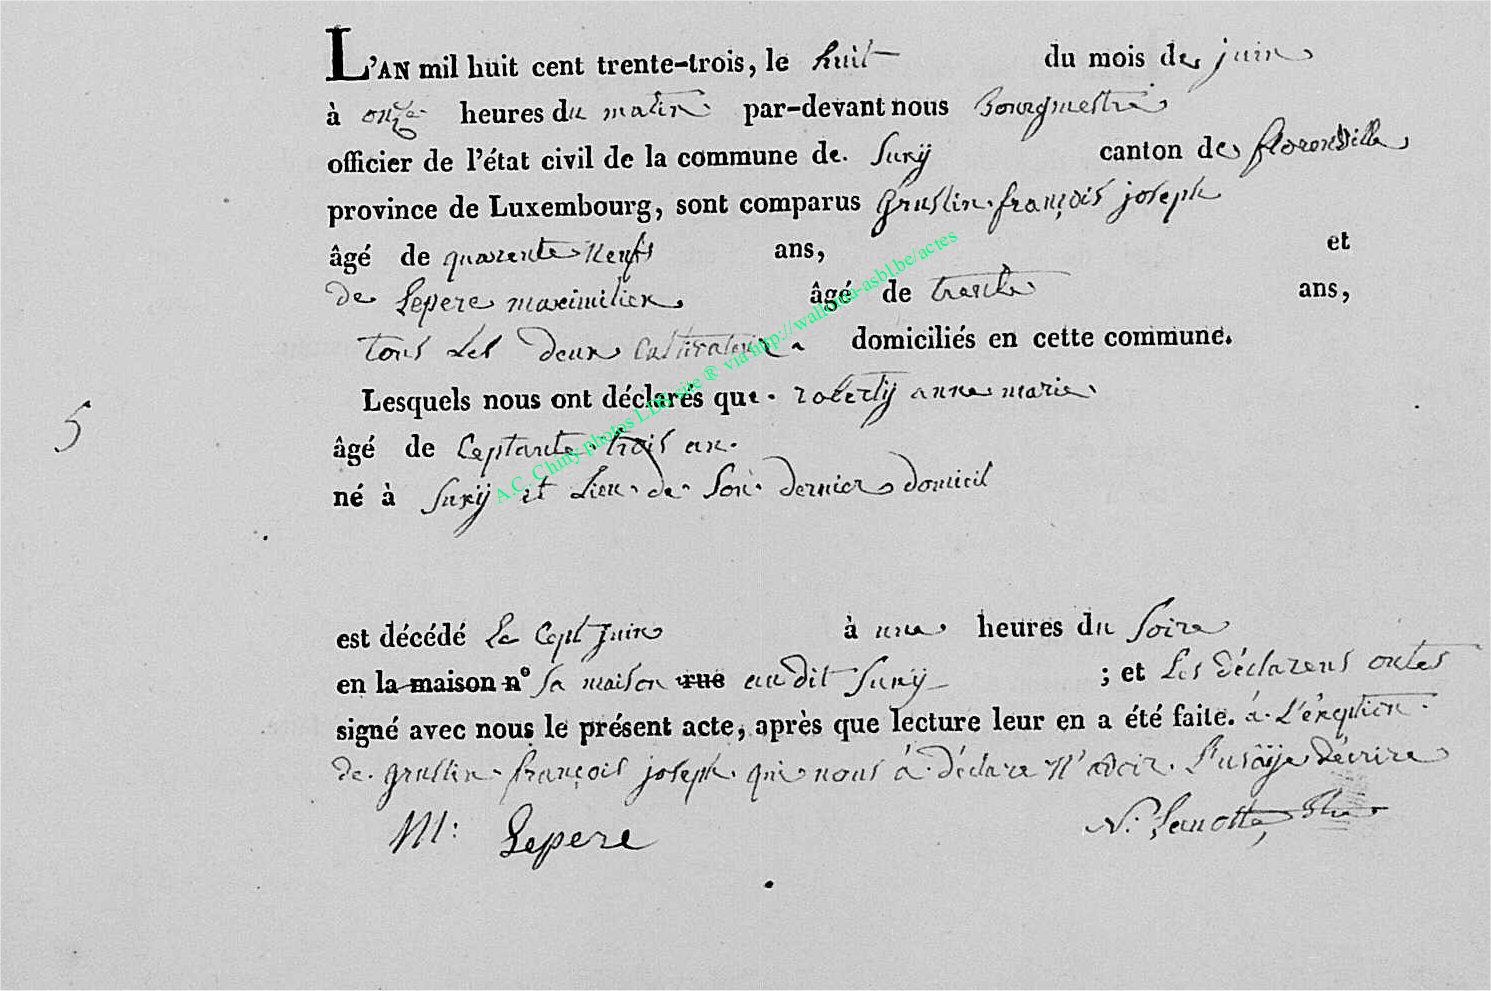 L'AN mil huit cent trente-trois, le huit du mois de juin
à onze heures du matin par-devant nous Bourgmestre
officier de l'état civil de la commune de Suxÿ canton de florenville
province de Luxembourg, sont comparus gruslin françois joseph
âgé de quarente neufs ans, et
de Lepere maximilien âgé de trente ans,
tous les deux Cultivateur domiciliés en cette commune.
Lesquels nous ont déclarés que robertÿ anne marie
5
âgé de Ceptante trois an
né à Suxÿ et Lieu de Son dernier domicil
est décédé Le Cept Juin à une heures du Soire
en la maison n° Sa maison rue au dit Suxÿ ; et Les Déclarens ontes
signé avec nous le présent acte, après que lecture leur en a été faite. à L'éxeption
de gruslin françois joseph qui nous á déclare N'avoir L'usâÿe Décrire
M: Lepere
N:
A.C. Chiny photos LDS site ® via http://wallonia-asbl.be/actes